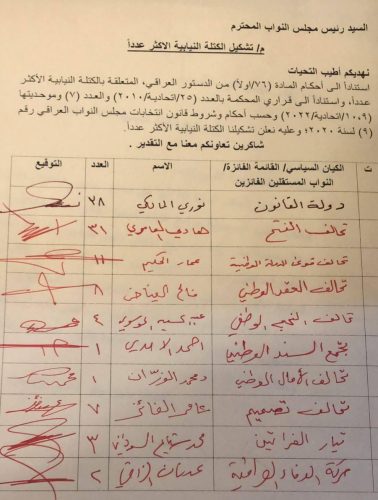 السيد رئيس مجلس النواب المحترم
م/ تشكيل الكتلة النيابية الاكثر عدداً
نهديكم أطيب التحيات
استناداً الى أحكام المادة (٧٦/أولاً) من الدستور العراقي، المتعلقة بالكتلة النيابية الأكثر
عدداً، واستناداً الى قراري المحكمة بالعدد (٢٥/اتحادية/٢٠١٠) والعدد (٧) وموحديتها
(٩و١٠/اتحادية/٢٠٢٢) وحسب أحكام وشروط قانون انتخابات مجلس النواب العراقي رقم
(٩) لسنة ٢٠٢٠؛ وعليه نعلن تشكيلنا الكتلة النيابية الأكثر عدداً.
شاكرين تعاونكم معنا مع التقدير .
ت الكيان السياسي/ القائمة الفائزة/ النواب المستقلين الفائزين الاسم العدد التوقيع
دولة القانون نوري المالكي ٣٨
تحالف الفتح هادي العامري ٣١
تحالف قوى الدولة الوطنية عمار الحكيم ١١
تحالف العقد الوطني فالح الفياض ٨
تحالف النهج الوطني الموسوي ٤
تجمع السند الوطني احمد الاسدي ١
تحالف الآمال الوطني د محمد ١
تحالف تصميم عامر الفائز ٧
تيار الفراتين محمد شياع السوداني ٣
حركة الوفاء العراقية عدنان الزرفي ٢